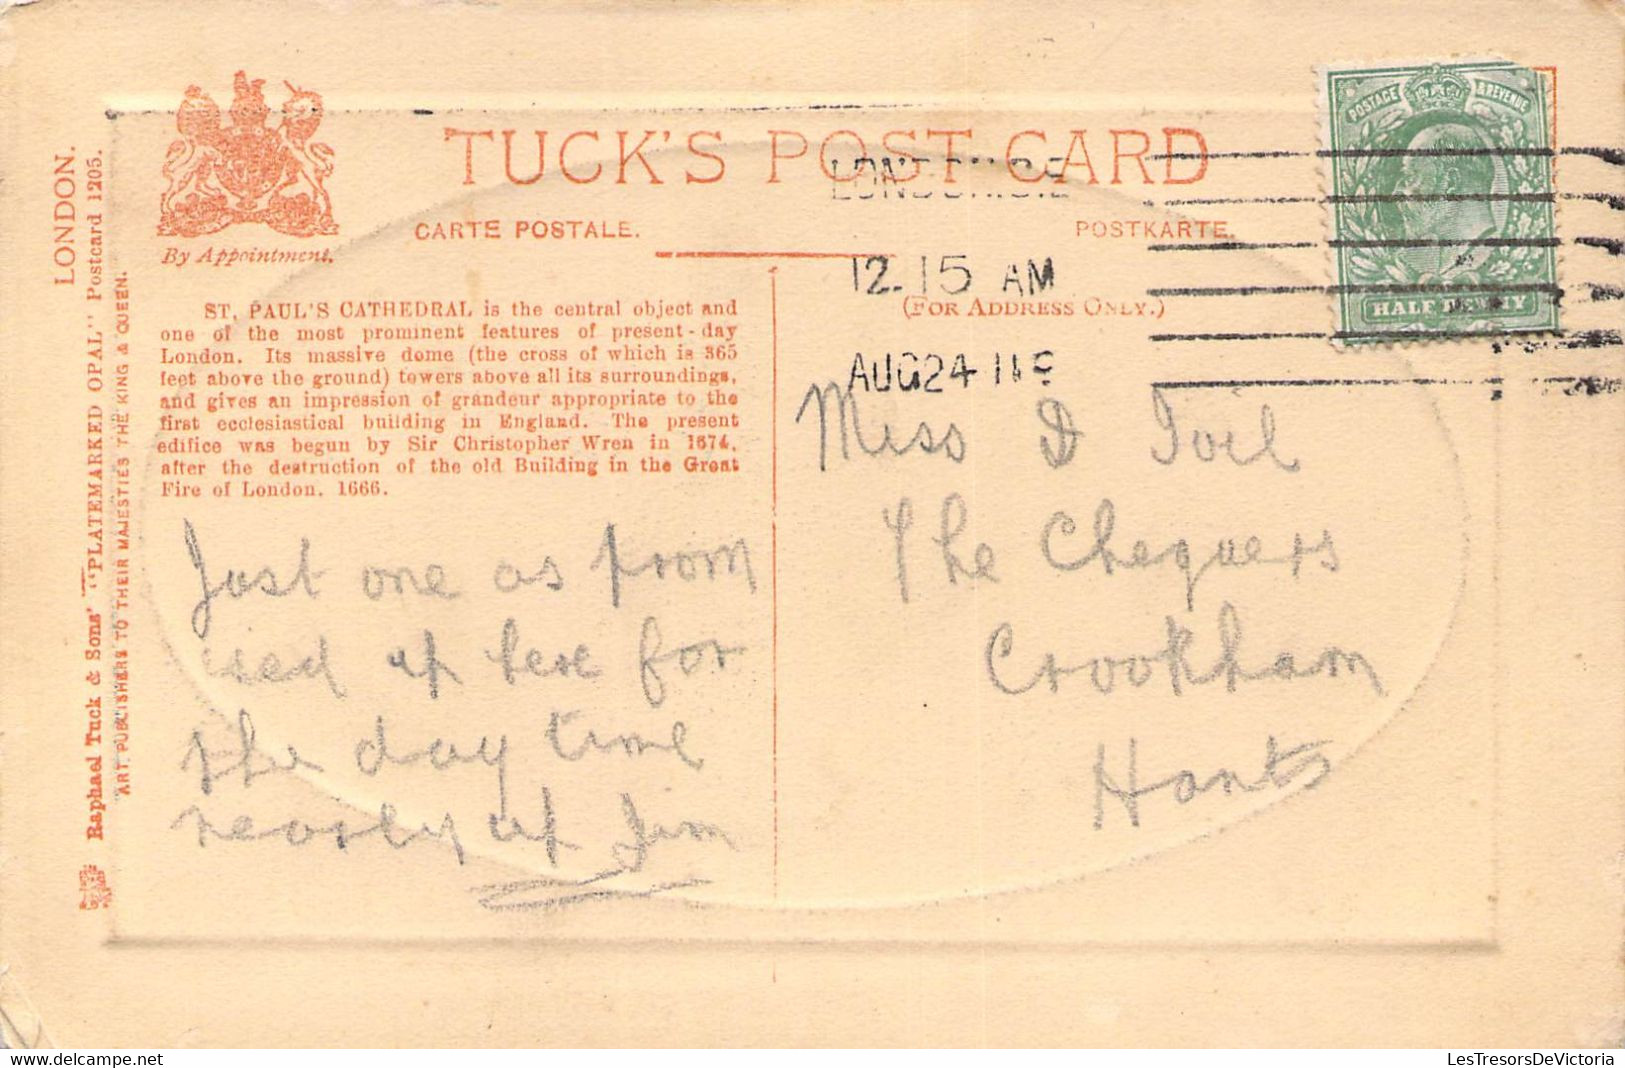 LONDON.
Raphael Tuck & Sons' "PLATEMARKED OPAL" Postcard 1205.
ART PUBLISHERS TO THEIR MAJESTIES THE KING & QUEEN.
By Appointment.
TUCK'S POST CARD
CARTE POSTALE.
POSTKARTE.
(FOR ADDRESS ONLY.)
POSTAGE & REVENUE
HALF PENNY
12.15 AM
AUG 24
ST. PAUL'S CATHEDRAL is the central object and
one of the most prominent features of present-day
London. Its massive dome (the cross of which is 365
feet above the ground) towers above all its surroundings,
and gives an impression of grandeur appropriate to the
first ecclesiastical building in England. The present
edifice was begun by Sir Christopher Wren in 1674,
after the destruction of the old Building in the Great
Fire of London, 1666.
Just one as prom
ised up here for
the day time
nearly up Jim
Miss D
The Chequers
Crookham
Hants
LesTresorsDeVictoria